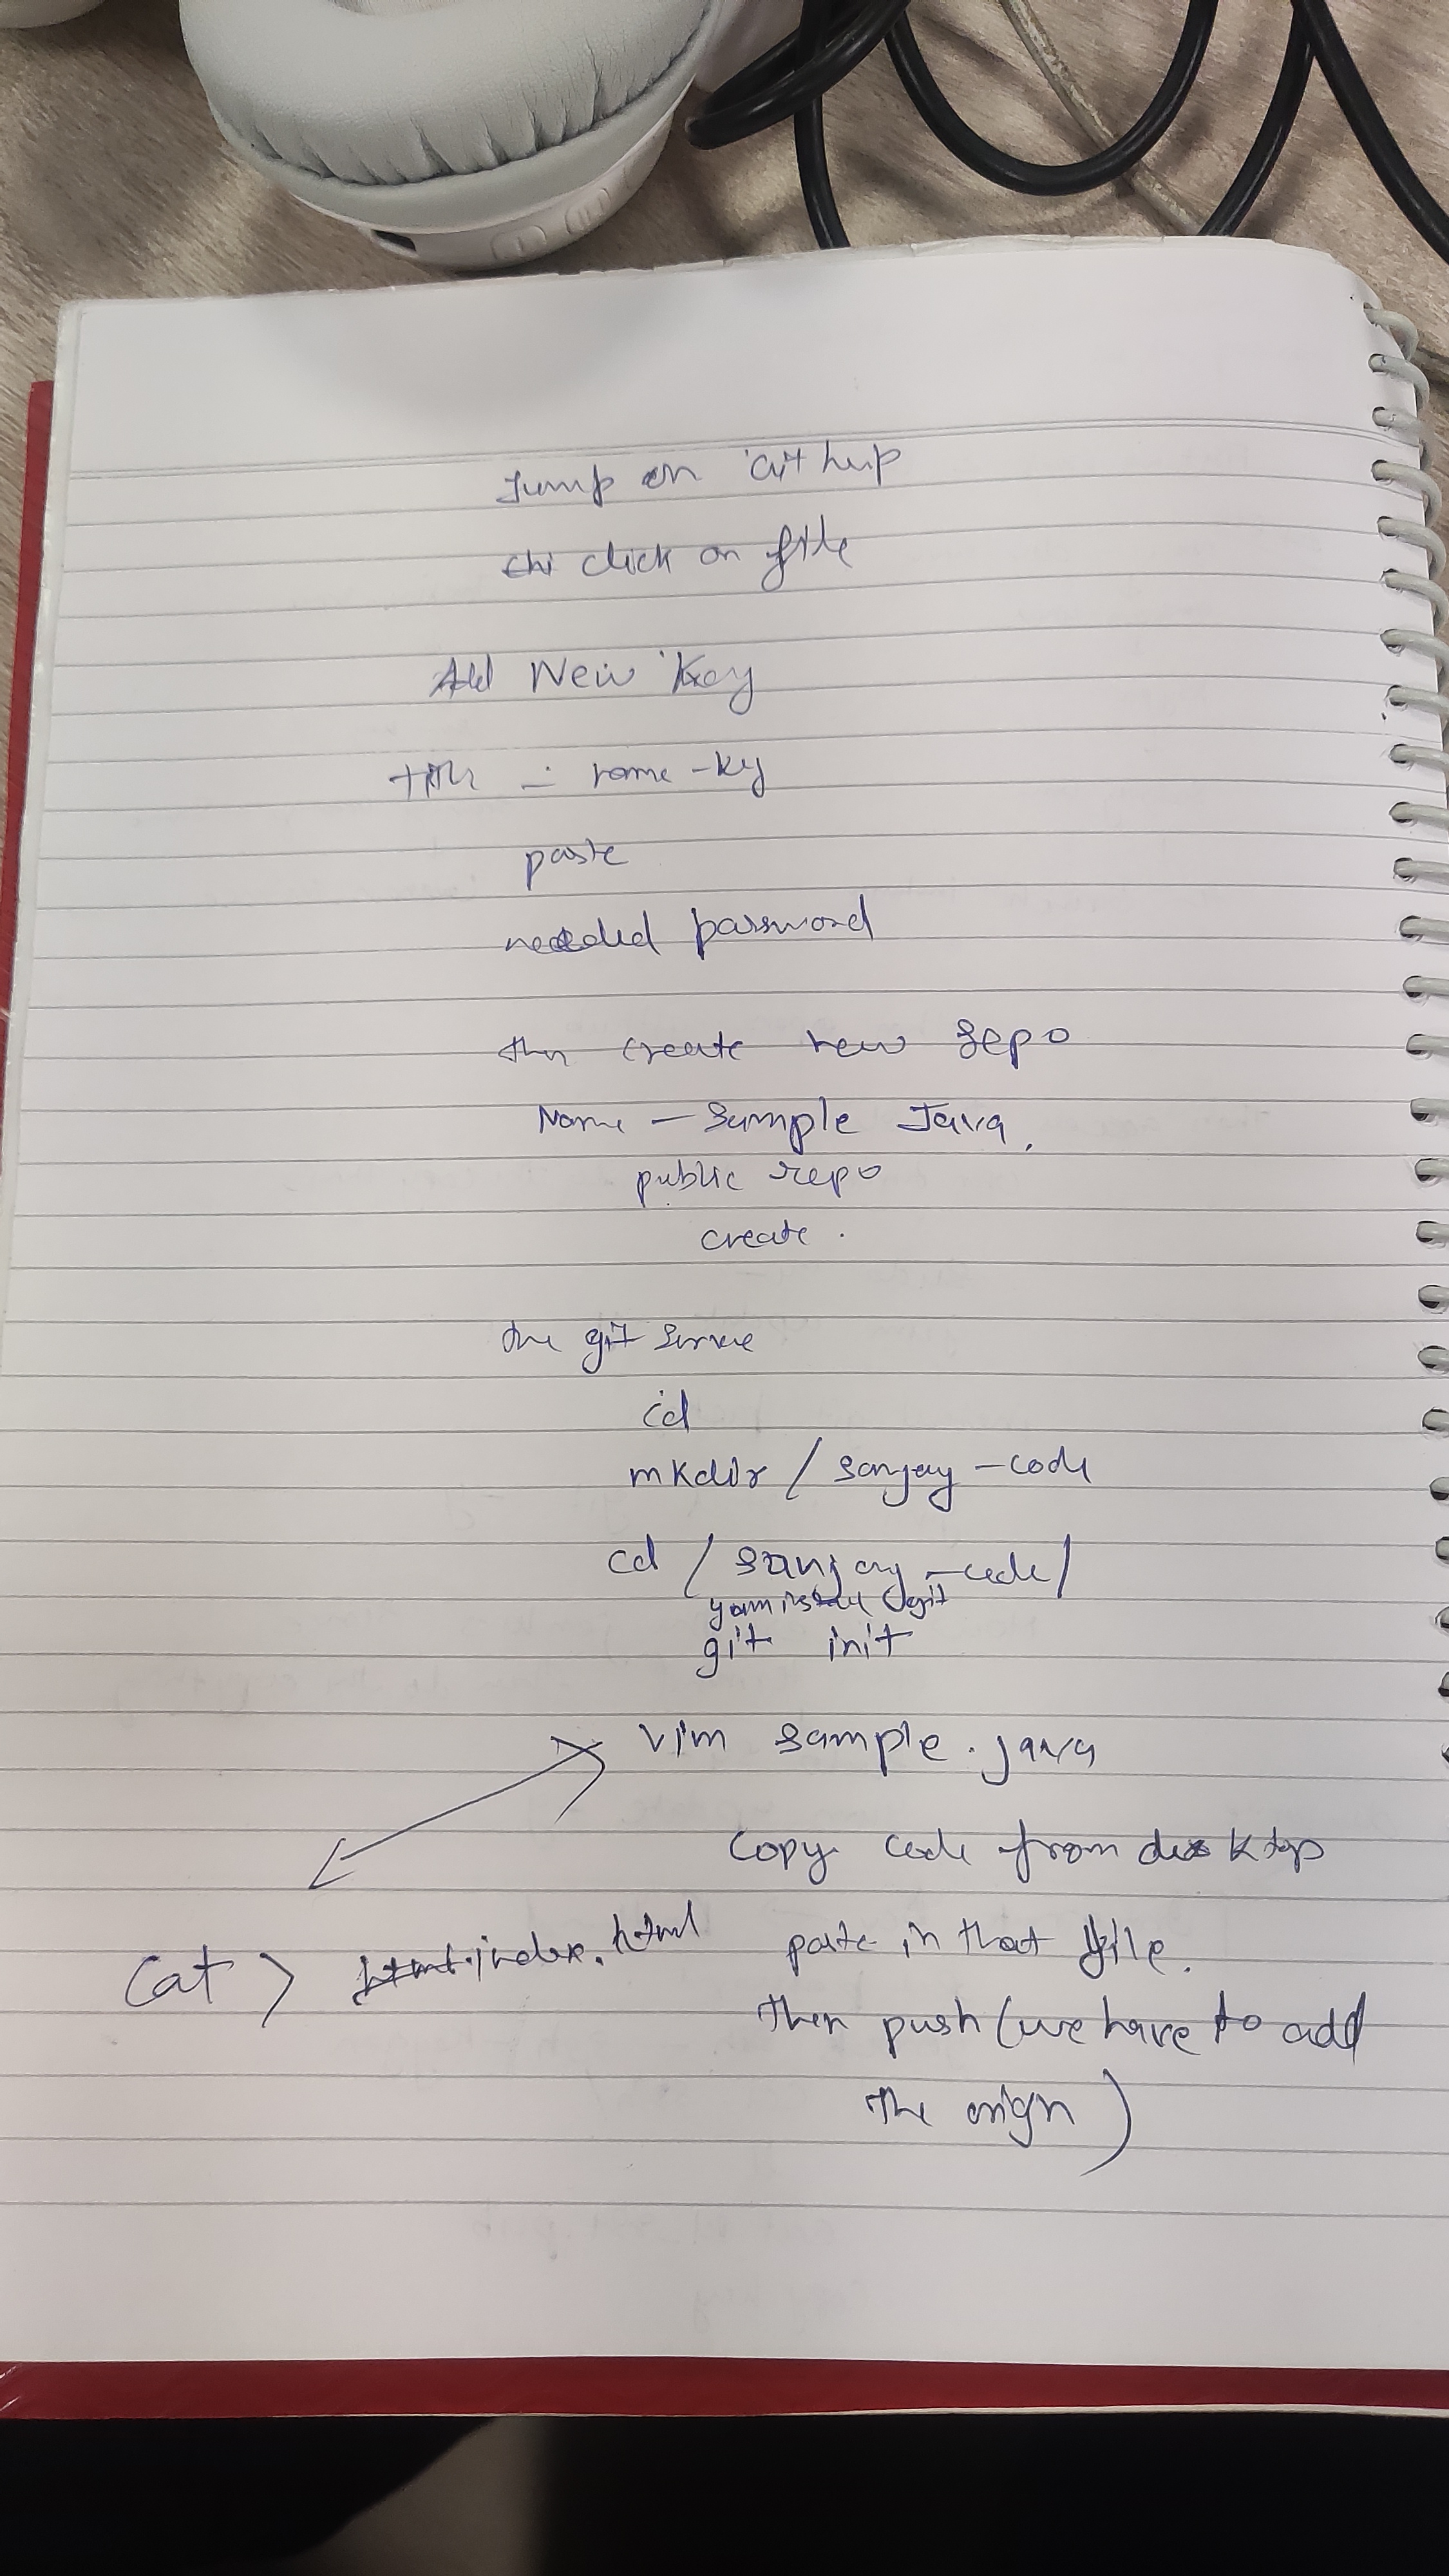 Jump on Github
click on file
Add New Key
title - rome-ky
paste
needed password
then create new repo
Name - Sample Java.
public repo
create.
the git
cd
mkdir /sanjay-code
cd /sanjay-code/
yum install git
git init
vim sample.java
Copy code from desktop
paste in that file.
cat > index.html
then push (we have to add
the origin)